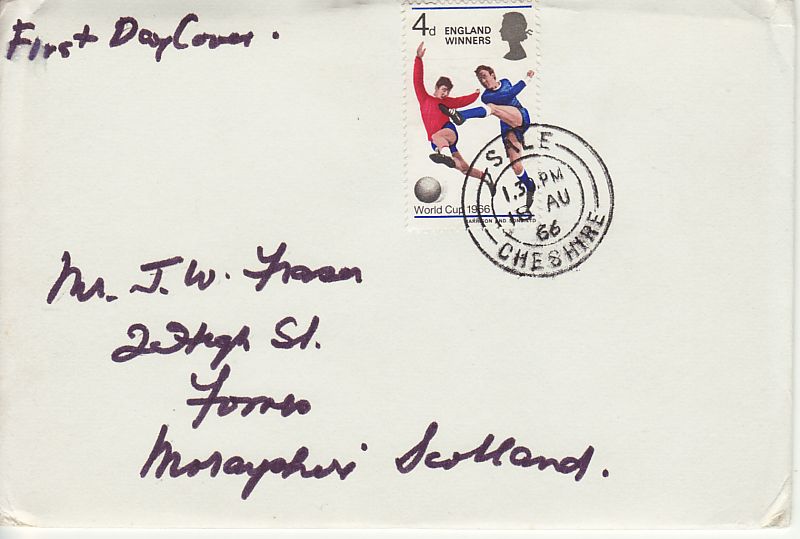 First Day Cover.
4d ENGLAND
WINNERS
World Cup 1966
HARRISON AND SONS LTD
SALE
1.30 PM
18 AU
66
CHESHIRE
Mr. J. W. Fraser
High St.
Forres
Morayshire Scotland.